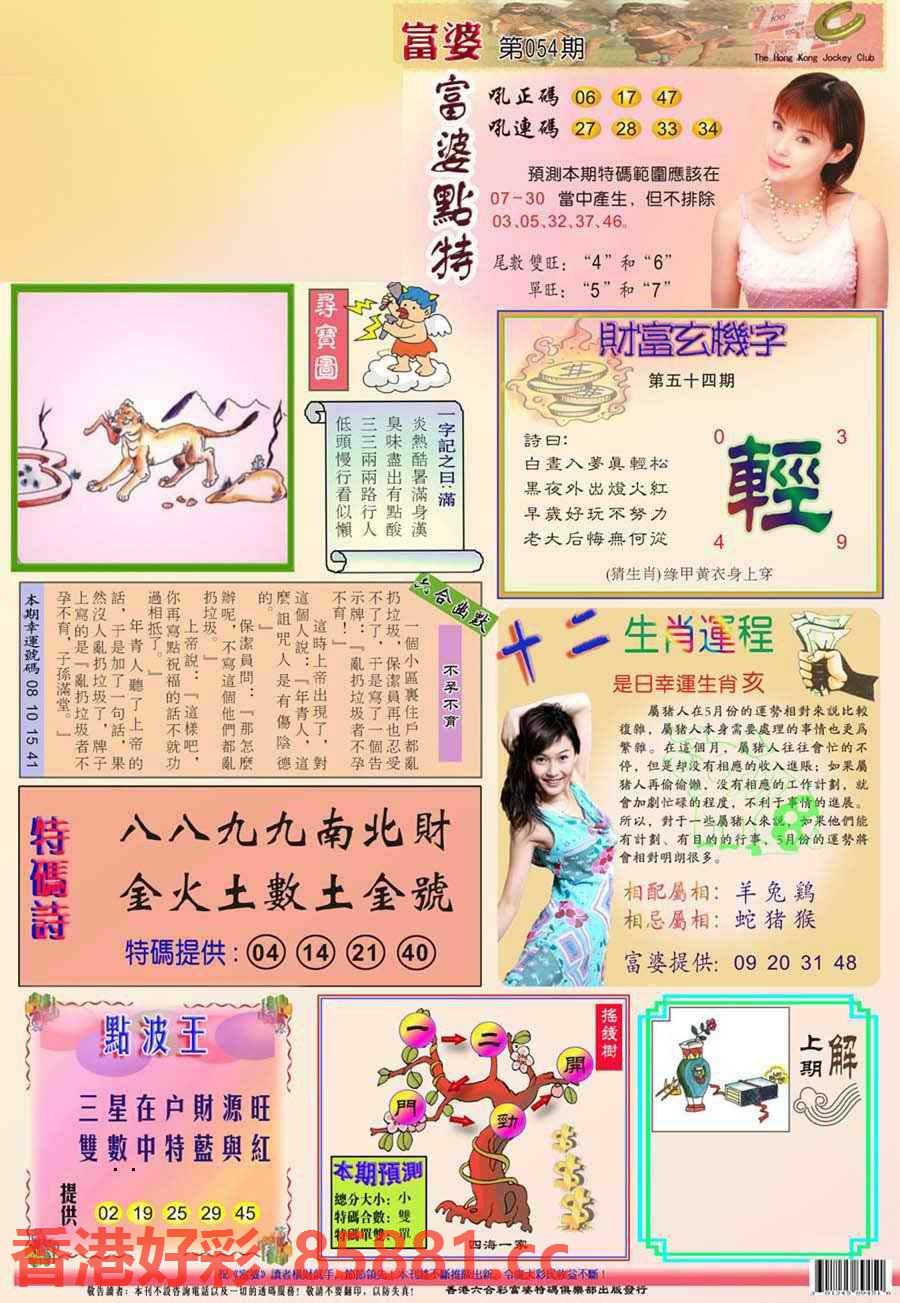 富婆 第054期
The Hong Kong Jockey Club
富婆點特
吼正碼 06 17 47
吼連碼 27 28 33 34
預測本期特碼範圍應該在
07-30 當中產生，但不排除
03、05、32、37、46。
尾數雙旺：“4”和“6”
單旺：“5”和“7”
尋寶圖
一字記之曰：滿
炎熱酷暑滿身漢
臭味盡出有點酸
三三兩兩路行人
低頭慢行看似懶
財富玄機字
第五十四期
詩曰：
白晝入夢眞輕松
黑夜外出燈火紅
早歲好玩不努力
老大后悔無何從
0 3
輕
4 9
(猜生肖)綠甲黃衣身上穿
六合幽默
不孕不育
一個小區裏住戶都亂
扔垃圾，保潔員再也忍受
不了了，于是寫了一個告
示牌：『亂扔垃圾者不孕
不育！』
這時上帝出現了，對
這個人說：『年青人，什
麼詛咒人是有傷陰德
的。』
保潔員問：『那怎麼
辦呢，不寫這個他們都亂
扔垃圾。』
上帝說：『這樣吧，
你再寫點祝福的話不就功
過相抵了。』
年青人聽了上帝的
話，于是加了一句話，果
然沒人亂扔垃圾了，牌子
上寫的是『亂扔垃圾者不
孕不育，子孫滿堂。』
本期幸運號碼 08 10 15 41
十二生肖運程
是日幸運生肖亥
屬豬人在5月份的運勢相對來說比較
復雜，屬豬人本身需要處理的事情也更爲
繁雜。在這個月，屬豬人往往會忙的不
停，但是却没有相應的收入進賬；如果屬
猪人再偷偷懶，没有相應的工作計劃，就
會加劇忙碌的程度，不利于事情的進展。
所以，對于一些屬豬人來説，如果他們能
有計劃、有目的的行事，5月份的運勢將
會相對明朗很多。
相配屬相：羊兔鷄
相忌屬相：蛇猪猴
富婆提供：09 20 31 48
特碼詩
八八九九南北財
金火土數土金號
特碼提供：04 14 21 40
點波王
三星在户財源旺
雙數中特藍與紅
提供 02 19 25 29 45
搖錢樹
一 二 開
門 勁
本期預測
總分大小：小
特碼合數：雙
特碼單雙：單
四海一家
上期解
香港好彩 85881.cc
敬告讀者：本刊不設咨詢電話以及一切的透碼服務！敬請不要翻印，以防失真！
香港六合彩富婆特碼俱樂部出版發行